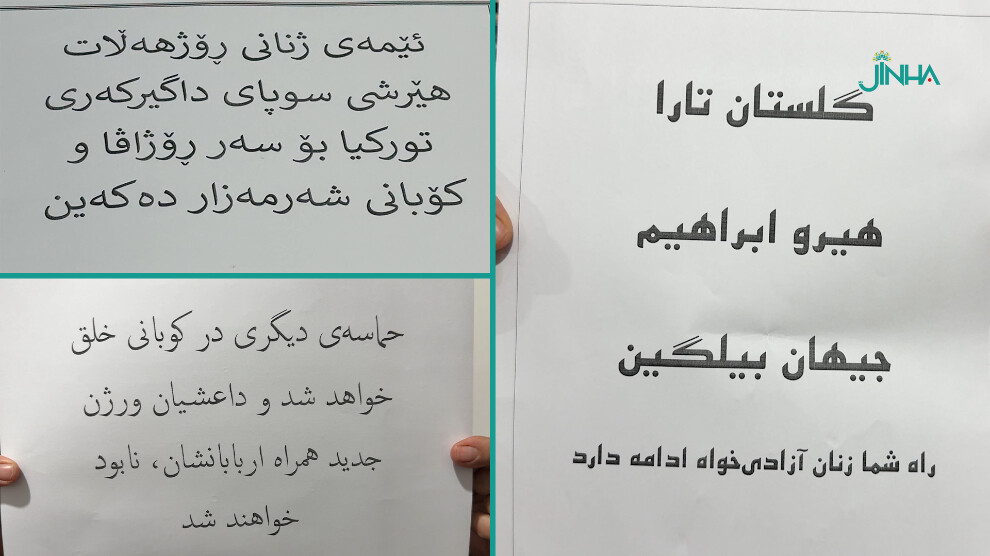 ئێمەی ژنانی ڕۆژهەڵات
هێرشی سوپای داگیرکەری
تورکیا بۆ سەر ڕۆژاڤا و
کۆبانی شەرمەزار دەکەین
حماسه‌ی دیگری در کوبانی خلق
خواهد شد و داعشیان ورژن
جدید همراه اربابانشان، نابود
خواهند شد
JINHA
گلستان تارا
هیرو ابراهیم
جیهان بیلگین
راه شما زنان آزادی‌خواه ادامه دارد